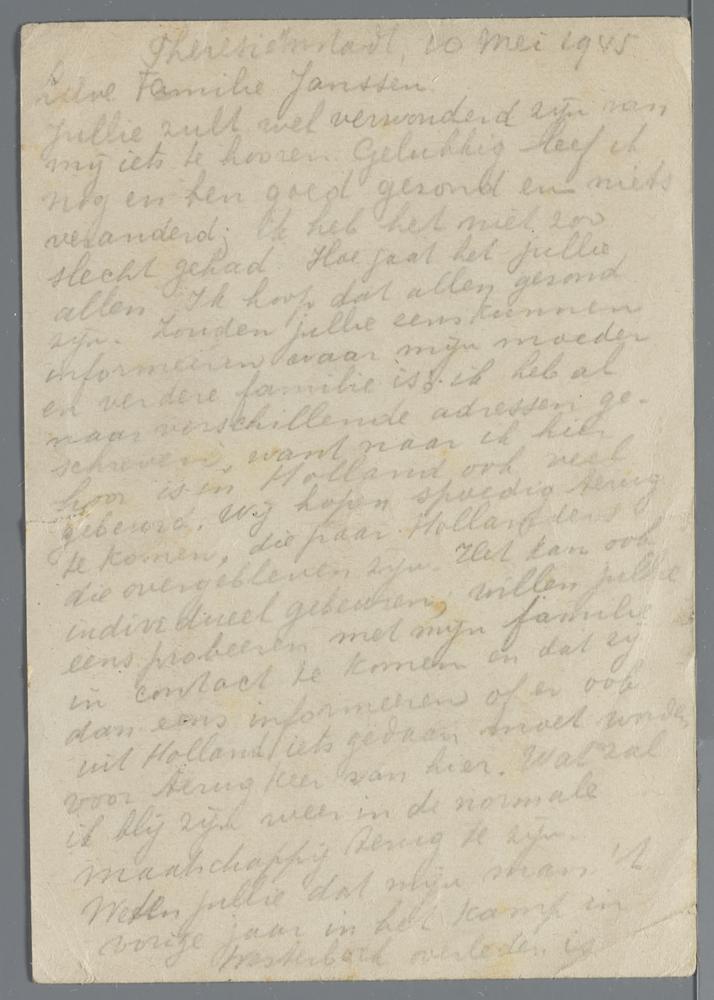 Theresiënstadt, 10 Mei 1945
Lieve Familie Janssen.
Jullie zult wel verwonderd zijn van
mij iets te hooren. Gelukkig leef ik
nog en ben goed gezond en niets
veranderd; Ik heb het niet zoo
slecht gehad. Hoe gaat het jullie
allen. Ik hoop dat allen gezond
zijn. Zouden jullie eens kunnen
informeeren waar mijn moeder
en verdere familie is; ik heb al
naar verschillende adressen ge-
schreven, want naar ik hier
hoor is in Holland ook veel
gebeurd. Wij hopen spoedig terug
te komen, die paar Hollanders
die overgebleven zijn. Het kan ook
individueel gebeuren, willen jullie
eens probeeren met mijn familie
in contact te komen en dat zij
dan eens informeeren of er ook
uit Holland iets gedaan moet worden
voor terugkeer van hier. Wat zal
ik blij zijn weer in de normale
maatschappij terug te zijn.
Weten jullie dat mijn man 't
vorige jaar in het kamp in
Westerbork overleden is